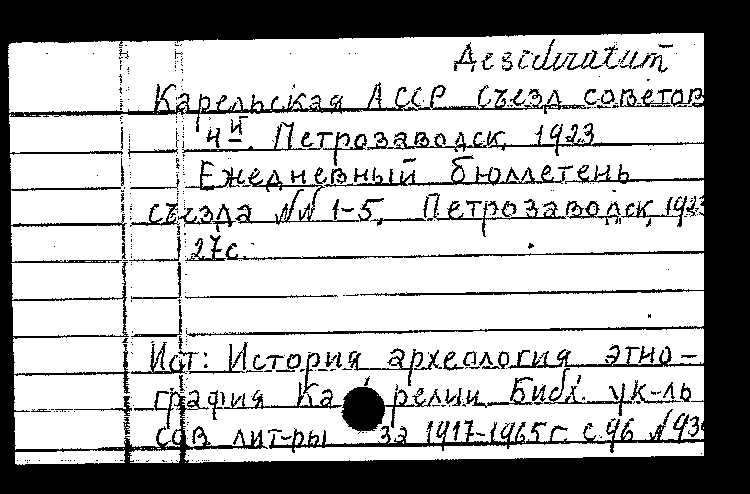 Desideratum
Карельская АССР Съезд советов
4й. Петрозаводск, 1923
Ежедневный бюллетень
съезда №№ 1-5, Петрозаводск, 1923
27с.
Ист: История археология этно-
графия Карелии. Библ. ук-ль
сов лит-ры за 1917-1965 г. с.96